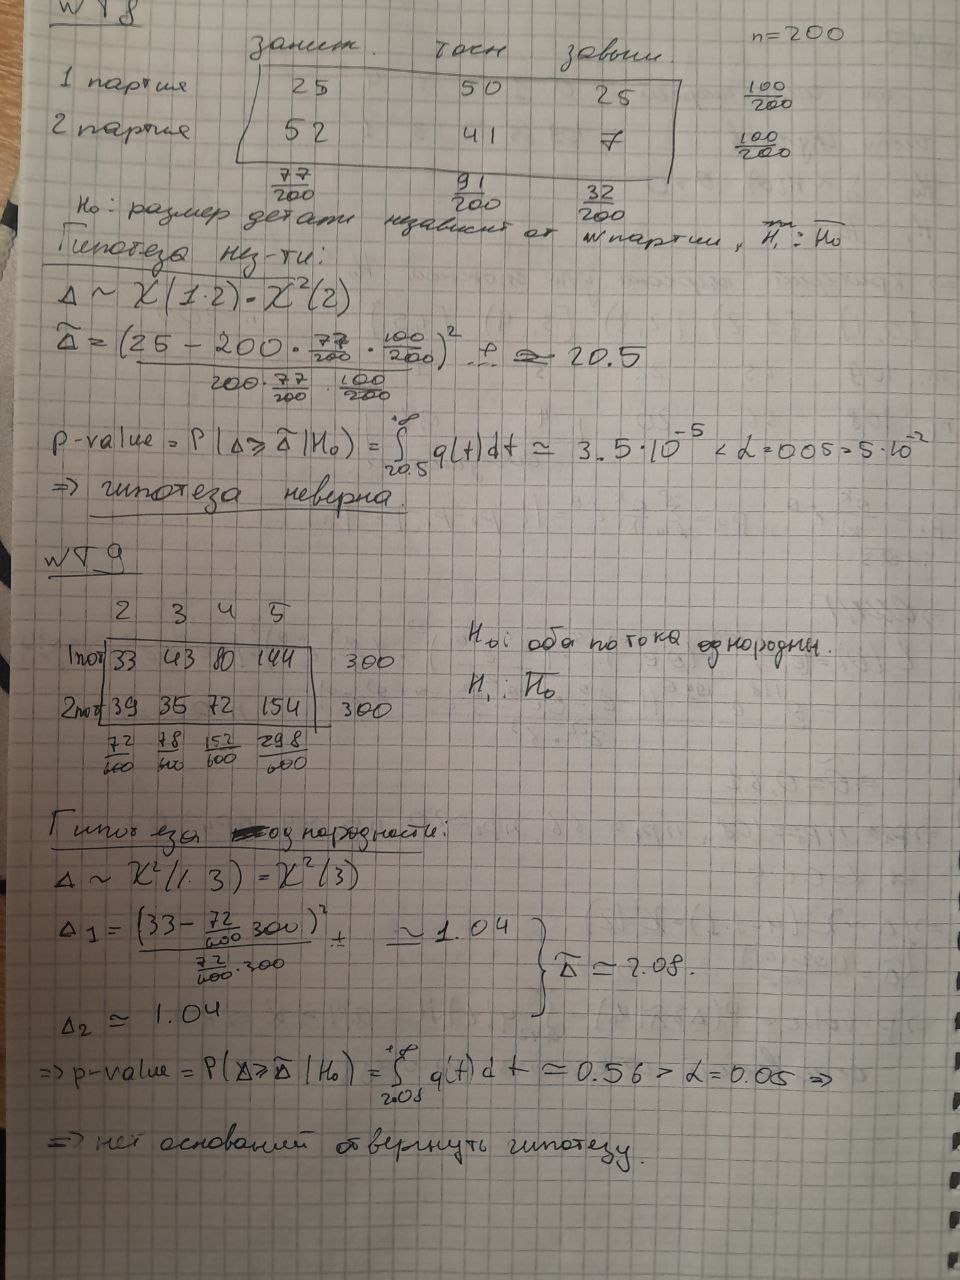 №T8
заниж. точн завыш. n=200
1 партия 25 50 25 100/200
2 партия 52 41 7 100/200
77/200 91/200 32/200
H₀: размер детали независит от № партии, H₁: H̅₀
Гипотеза нез-ти:
Δ ~ X(1·2) = X²(2)
Δ̃ = (25 - 200 · 77/200 · 100/200)² / (200 · 77/200 · 100/200) + ... ≃ 20.5
p-value = P(Δ ≥ Δ̃ | H₀) = ∫_{20.5}^{+∞} q(t)dt ≃ 3.5·10⁻⁵ < α = 005 = 5·10⁻²
=> гипотеза неверна.
№T9
2 3 4 5
1пот 33 43 80 144 300
2пот 39 35 72 154 300
72/600 78/600 152/600 298/600
H₀: оба потока однородны.
H₁: H̅₀
Гипотеза однородности:
Δ ~ X²(1·3) = X²(3)
Δ₁ = (33 - 72/600 300)² / (72/600 · 300) + ≃ 1.04
Δ̃ ≃ 2.08.
Δ₂ ≃ 1.04
=> p-value = P(Δ ≥ Δ̃ | H₀) = ∫_{2.08}^{+∞} q(t)dt ≃ 0.56 > α = 0.05 =>
=> нет оснований отвернуть гипотезу.